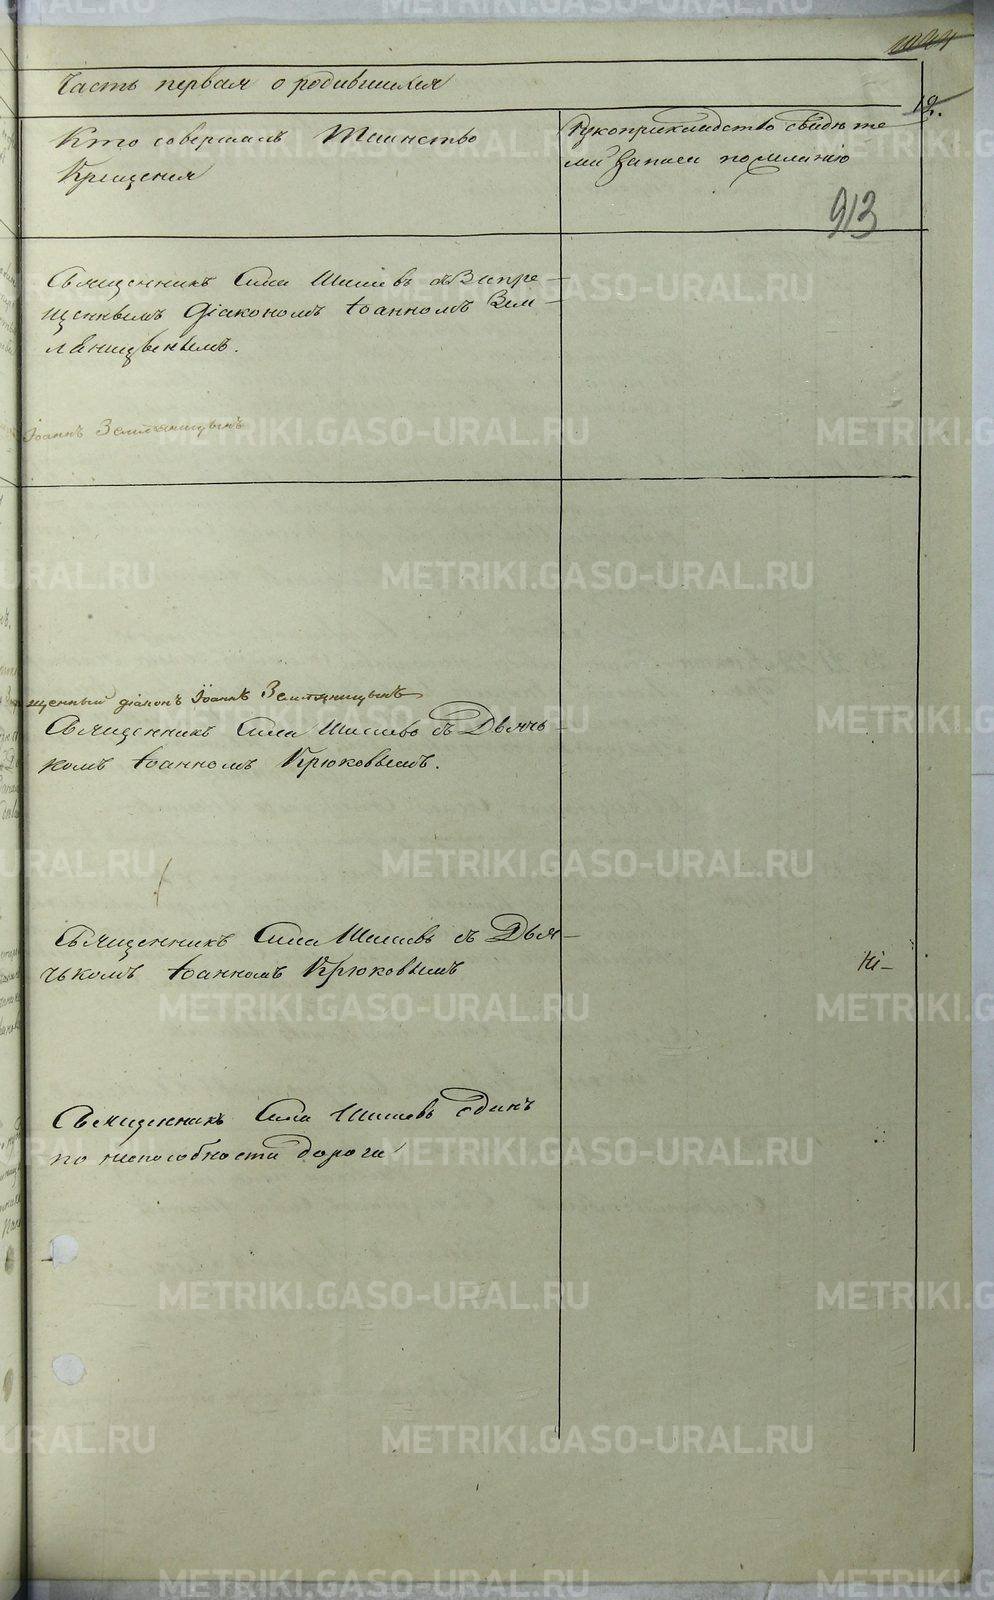 Часть первая о родившихся
12.
Кто совершалъ Таинство
Крещения
Рукоприкладство свидѣте
лей записи по желанію
913
Священникъ Сила Шишевъ съ Запре-
щеннымъ Діакономъ Іоанномъ Зем-
ляницынымъ.
Іоаннъ Земляницынъ
щенный діаконъ Іоаннъ Земляницынъ
Священникъ Сила Шишевъ съ Дьячь-
комъ Іоанномъ Крюковымъ.
Священникъ Сила Шишевъ съ Дья-
чькомъ Іоанномъ Крюковымъ
Священникъ Сила Шишевъ одинъ
по неспособности дороги
METRIKI.GASO-URAL.RU